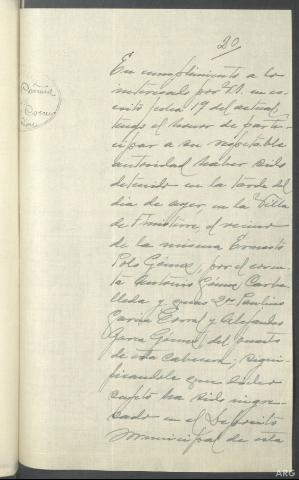 20
En cumplimiento a lo
interesado por V.S. en es-
crito fecha 19 del actual,
tengo el honor de parti-
cipar a su respetable
autoridad haber sido
detenido en la tarde del
dia de ayer, en la Villa
de Finisterre, el vecino
de la misma Ernesto
Polo Gómez, por el
Antonio Gómez Carba-
lleda y 2os Paulino
Garcia Corral y Alejandro
Garea Gómez, del puesto
de esta cabecera; signi-
ficandole que dicho
sujeto ha sido ingre-
sado en el Deposito
Municipal de esta
ARG